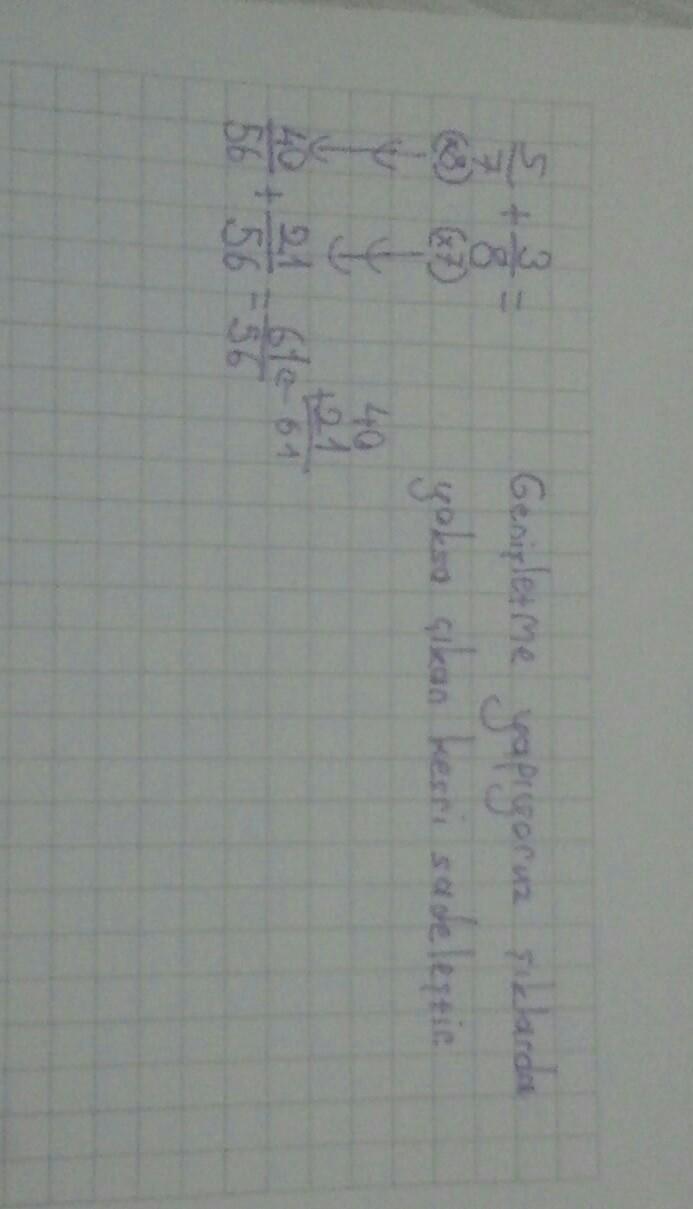 5/7 + 3/8 =
(x8) (x7)
40/56 + 21/56 = 61/56
40
+ 21
61
Genişletme yapıyoruz şıklarda
yoksa çıkan kesri sadeleştir.